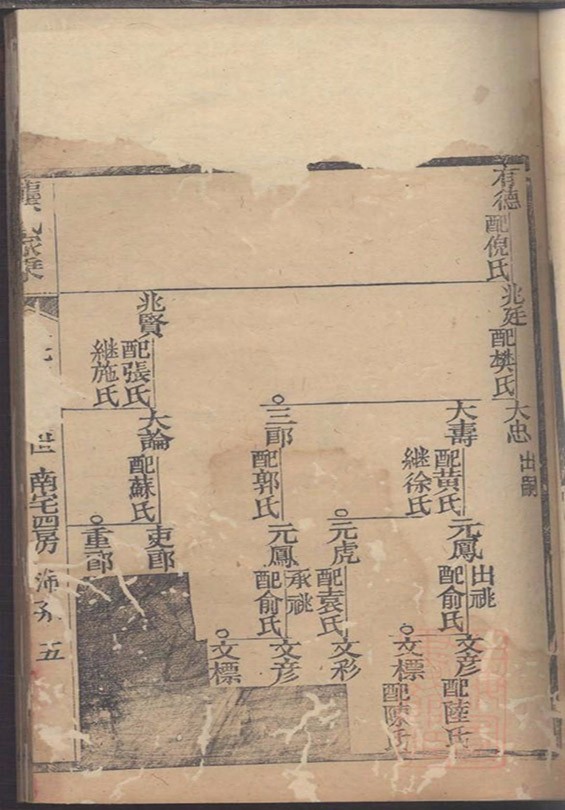 有德
配倪氏
兆廷
配樊氏
大忠
出嗣
大壽
配黄氏
継徐氏
元鳳
出祧
配俞氏
文彦
配陸氏
文標
配陳氏
元虎
配袁氏
文彩
三郎
配郭氏
元鳳
承祧
配俞氏
文彦
文標
兆賢
配張氏
継施氏
大論
配蘇氏
吏郎
重郎
龔氏家乘
南宅四房
五